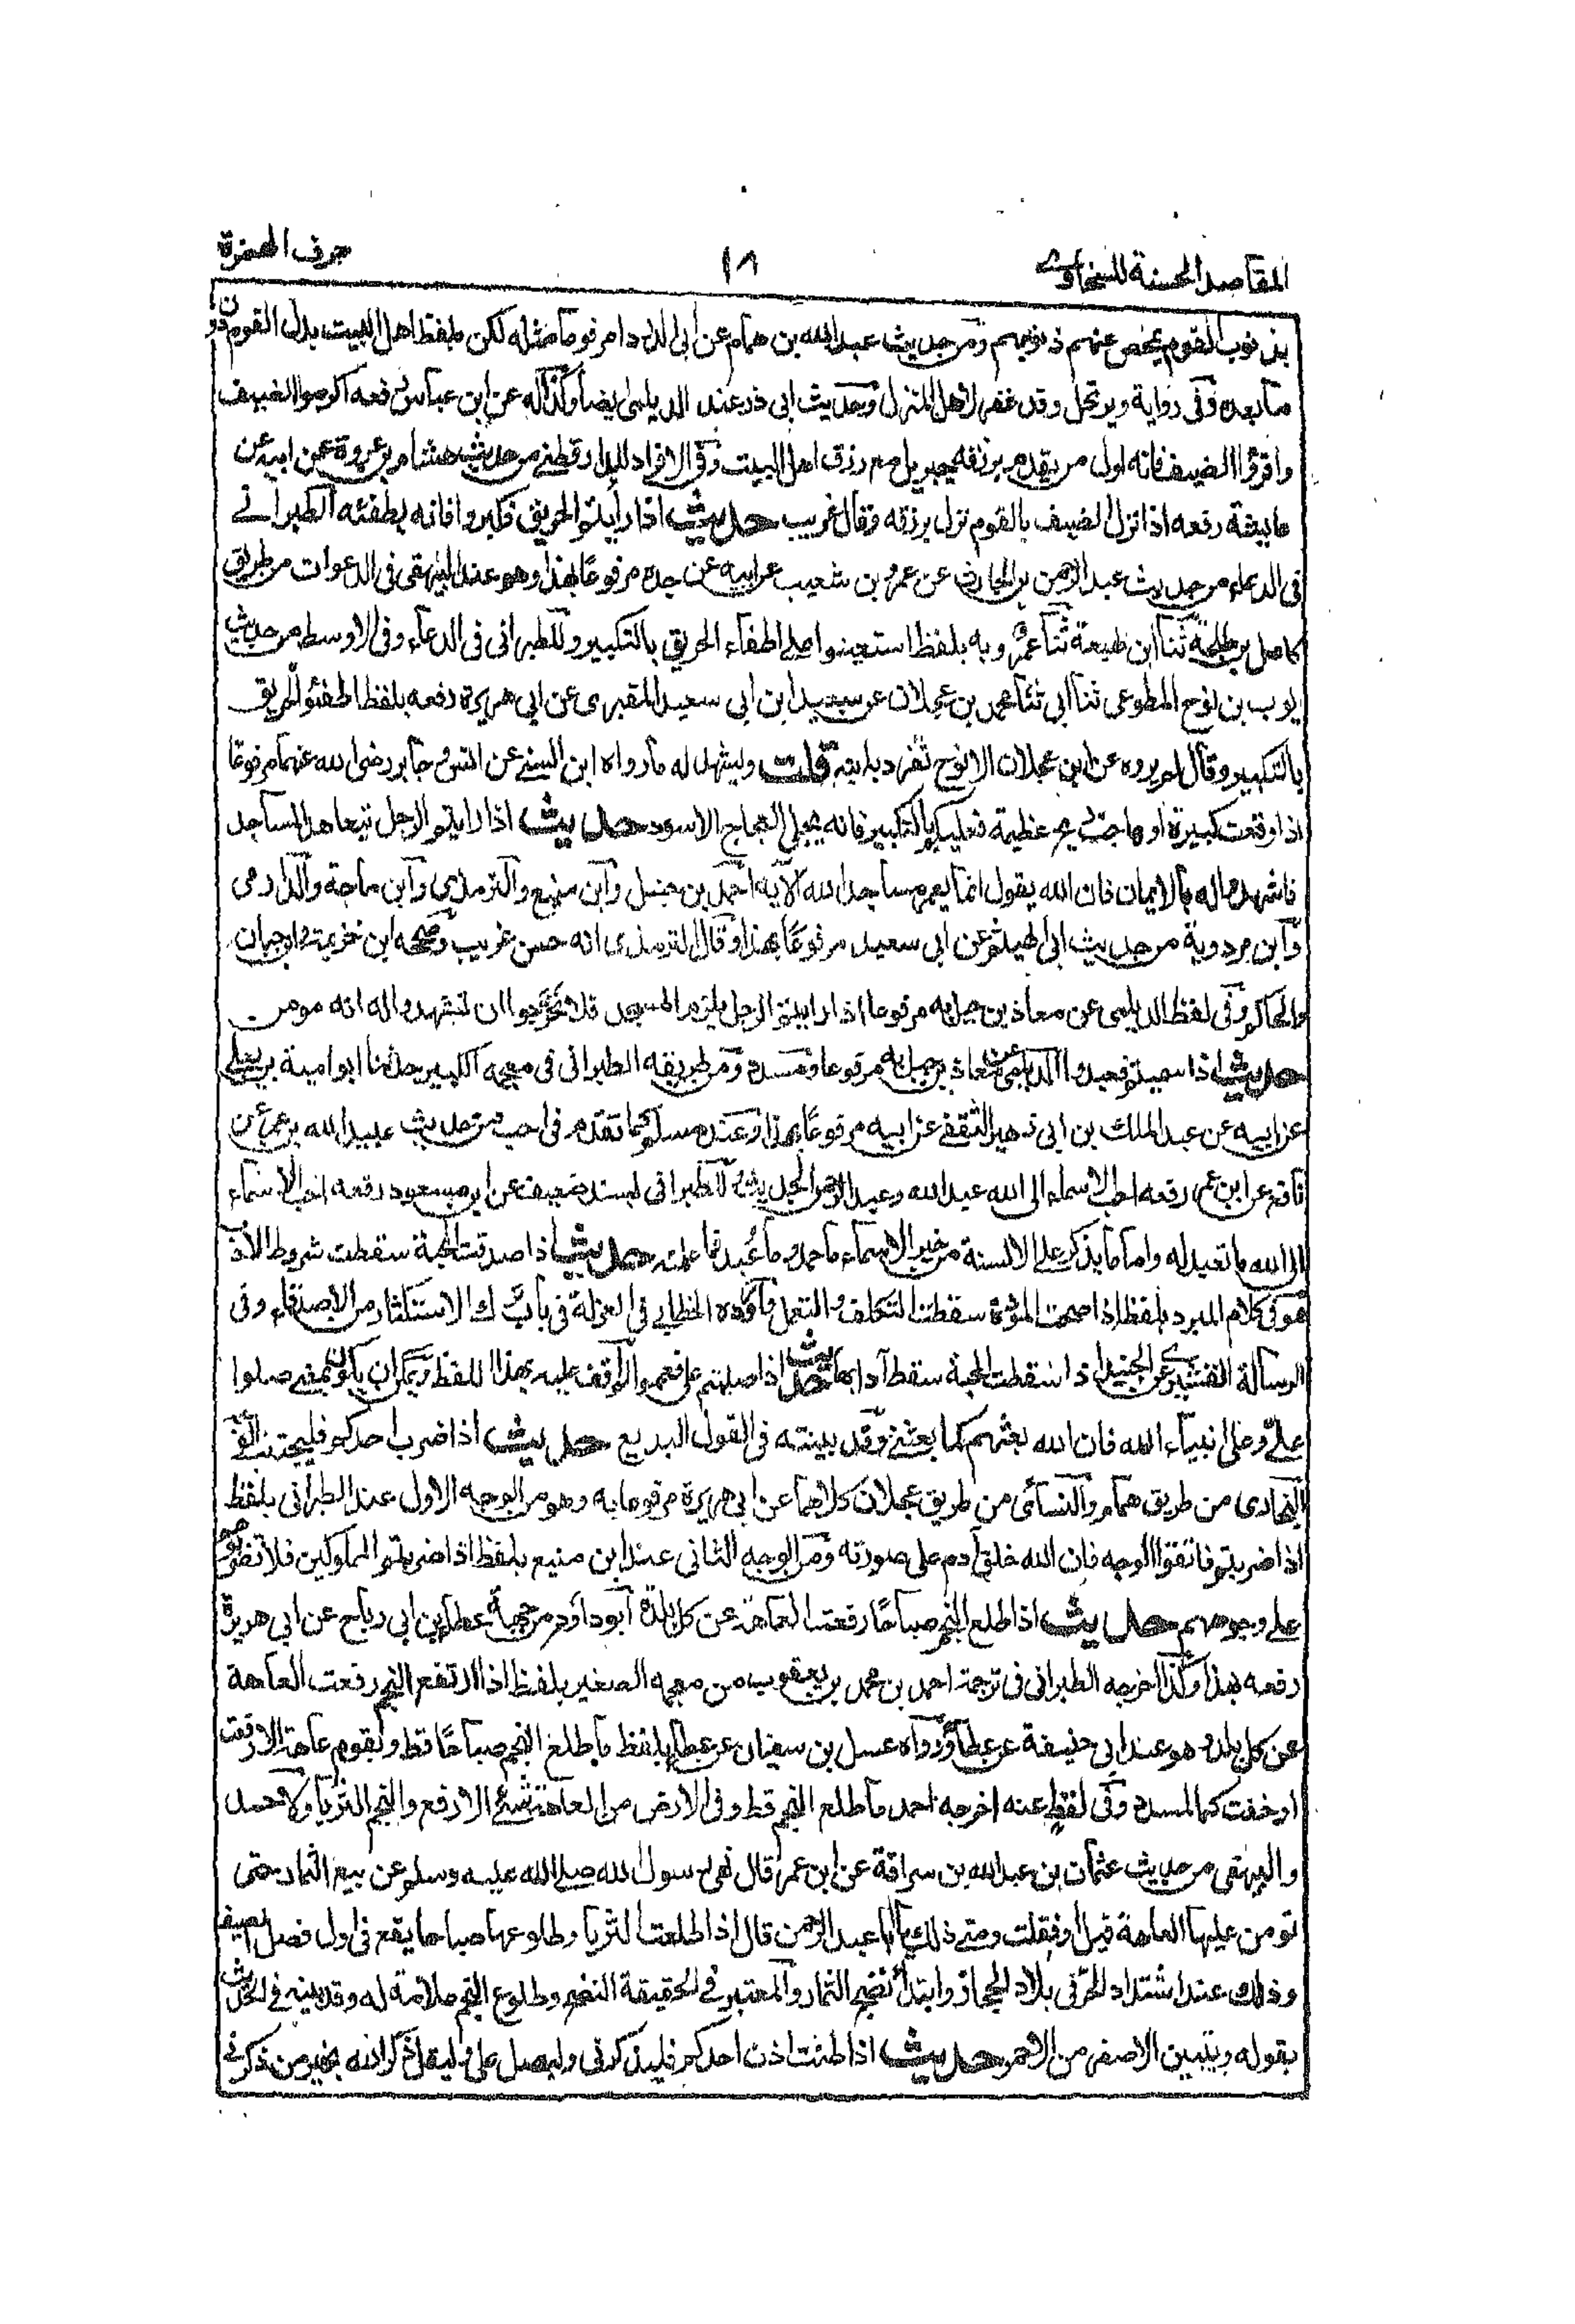 المقاصد الحسنة للسخاوى
١٨
حرف الهمزة
بذنوب القوم يمحص عنهم ذنوبهم ومن حديث عبد الله بن همام عن ابى الدرداء مرفوعا مثله لكن بلفظ اهل البيت بدل القوم دون
ما بعده وفى رواية ويرتحل وقد غفر لاهل المنزل وبحديث ابى ذر عند الديلمى ايضا وكذا له عن ابن عباس رفعه اكرموا الضيف
واقرؤا الضيف فانه اول من يقدم برزقه جبريل مع رزق اهل البيت وفى الافراد للدارقطنى من حديث هشام بن عروة عن ابيه عن
عايشة رفعه اذا نزل الضيف بالقوم نزل برزقه وقال غريب حديث اذا رأيتم الحريق فكبروا فانه يطفئه الطبرانى
فى الدعاء من حديث عبد الرحمن بن الحارث عن عمرو بن شعيب عن ابيه عن جده مرفوعا بهذا وهو عند البيهقى فى الدعوات من طريق
كامل بن طلحة ثنا ابن لهيعة ثنا عمرو به بلفظ استعينوا على اطفاء الحريق بالتكبير وللطبرانى فى الدعاء وفى الاوسط من حديث
ايوب بن نوح المطوعى ثنا ابى ثنا محمد بن عجلان عن سعيد ابن ابى سعيد المقبرى عن ابى هريرة رفعه بلفظ اطفئوا الحريق
بالتكبير وقال لم يروه عن ابن عجلان الا نوح تفرد به ابنه قلت ويشهد له ما رواه ابن السنى عن انس وجابر رضى الله عنهما مرفوعا
اذا وقعت كبيرة او هاجت ريح عظيمة فعليكم بالتكبير فانه يجلى العجاج الاسود حديث اذا رايتم الرجل يتعاهد المساجد
فاشهدوا له بالايمان فان الله يقول انما يعمر مساجد الله الآية احمد بن حنبل وابن منيع والترمذى وابن ماجة والدارمى
وابن مردوية من حديث ابى الهيثم عن ابى سعيد مرفوعا بهذا وقال الترمذى انه حسن غريب وصححه ابن خزيمة وابن حبان
والحاكم وفى لفظ الديلمى عن معاذ بن جبل به مرفوعا اذا رايتم الرجل يلزم المسجد فلا تحرجوا ان تشهدوا له انه مومن
حديث اذا سميتم فعبدوا الديلمى عن معاذ بن جبل به مرفوعا ومسدد ومن طريقه الطبرانى فى معجمه الكبير حدثنا ابو امية بن يعلى
عن ابيه عن عبد الملك بن ابى زهير الثقفى عن ابيه مرفوعا بهذا وعند مسلم كما تقدم فى احب من حديث عبيد الله بن عمر عن
نافع عن ابن عمر رفعه احب الاسماء الى الله عبد الله وعبد الرحمن الحديث وللطبرانى بسند ضعيف عن ابن مسعود رفعه احب الاسماء
الى الله ما تعبد له واما ما يذكر على الالسنة من خير الاسماء ما حمد وما عبد فما علمته حديث اذا صدقت المحبة سقطت شروط الادب
هو فى كلام المبرد بلفظ اذا صحت المودة سقطت التكلف والتعمل واورده الخطابى فى العزلة فى باب ترك الاستكثار من الاصدقاء وفى
الرسالة القشيرى عن الجنيد اذا سقطت المحبة سقط آدابها حديث اذا صليتم على فعمموا لم اقف عليه بهذا اللفظ ويمكن ان يكون بمعنى صلوا
على وعلى انبياء الله فان الله بعثهم كما بعثنى وقد بينته فى القول البديع حديث اذا ضرب احدكم فليجتنب الوجه
البخارى من طريق همام والنسائى من طريق عجلان كلاهما عن ابى هريرة مرفوعا به وهو من الوجه الاول عند الطبرانى بلفظ
اذا ضربتم فاتقوا الوجه فان الله خلق آدم على صورته ومن الوجه الثانى عند ابن منيع بلفظ اذا ضربتم المملوكين فلا تضربوهم
على وجوههم حديث اذا طلع النجم صباحا رفعت العاهة عن كل بلدة ابو داود من جهة عطا بن ابى رباح عن ابى هريرة
رفعه بهذا وكذا اخرجه الطبرانى فى ترجمة احمد بن محمد بن يعقوب من معجمه الصغير بلفظ اذا ارتفع النجم رفعت العاهة
عن كل بلد وهو عند ابى حنيفة عن عطا ورواه عسل بن سفيان عن عطا بلفظ ما طلع النجم صباحا قط ولقوم عاهة الا رفعت
او خفت كما لمسدد وفى لفظ عنه اخرجه احمد ما طلع النجم قط وفى الارض من العاهة شئ الا رفع والنجم الثريا ولاحمد
والبيهقى من حديث عثمان بن عبد الله بن سراقة عن ابن عمر قال نهى رسول الله صلى الله عليه وسلم عن بيع الثمار حتى
تومن عليها العاهة قيل او فقلت ومتى ذلك يا ابا عبد الرحمن قال اذا طلعت الثريا وطلوعها صباحا يقع فى اول فصل الصيف
وذلك عند اشتداد الحر فى بلاد الحجاز وابتداء نضج الثمار والمعتبر فى الحقيقة النضج وطلوع النجم علامة له وقد بينه فى الحديث
بقوله وتبين الاصفر من الاحمر حديث اذا طنت اذن احدكم فليذكرنى وليصل على وليقل ذكر الله بخير من ذكرنى